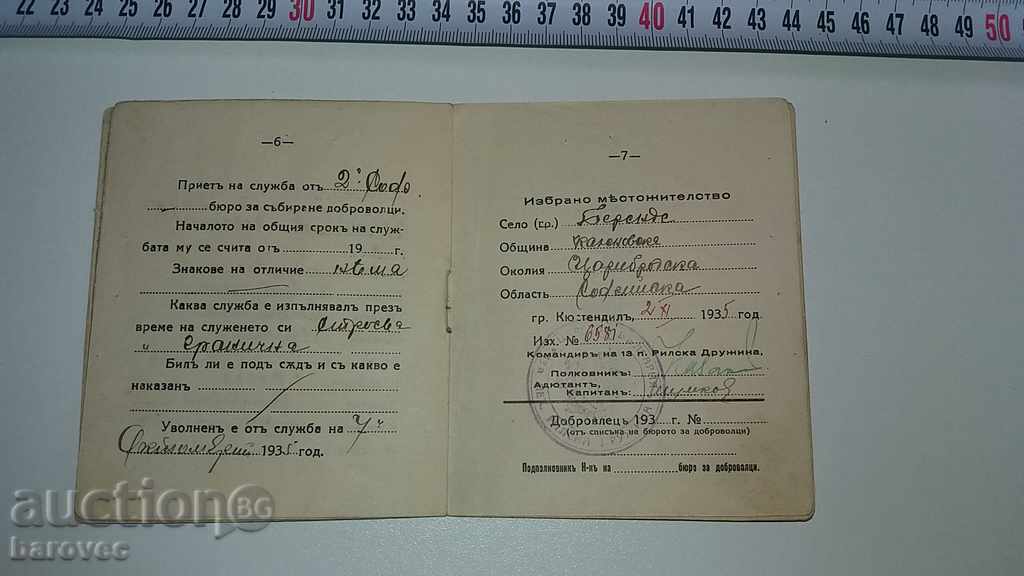 22 23 24 25 26 27 28 29 30 31 32 33 34 35 36 37 38 39 40 41 42 43 44 45 46 47 48 49 50
—6—
Приетъ на служба отъ 2° Софо
бюро за събиране доброволци.
Началото на общия срокъ на служ-
бата му се счита отъ 19 г.
Знакове на отличие нѣма
Каква служба е изпълнявалъ презъ
време на служенето си Строева
и гранична
Билъ ли е подъ сѫдъ и съ какво е
наказанъ
Уволненъ е отъ служба на 7и
Октомврий 1935 год.
—7—
Избрано мѣстожителство
Село (гр.) Беренде
Община
Околия Царибродска
Область Софийска
гр. Кюстендилъ, 2/XI 1935 год.
Изх. №
Командиръ на 13 п. Рилска Дружина,
Полковникъ:
Адютантъ,
Капитанъ:
Доброволецъ 193 г. №
(отъ списъка на бюрото за доброволци)
Подполковник Н-къ на бюро за доброволци.
auctionBG
barovec